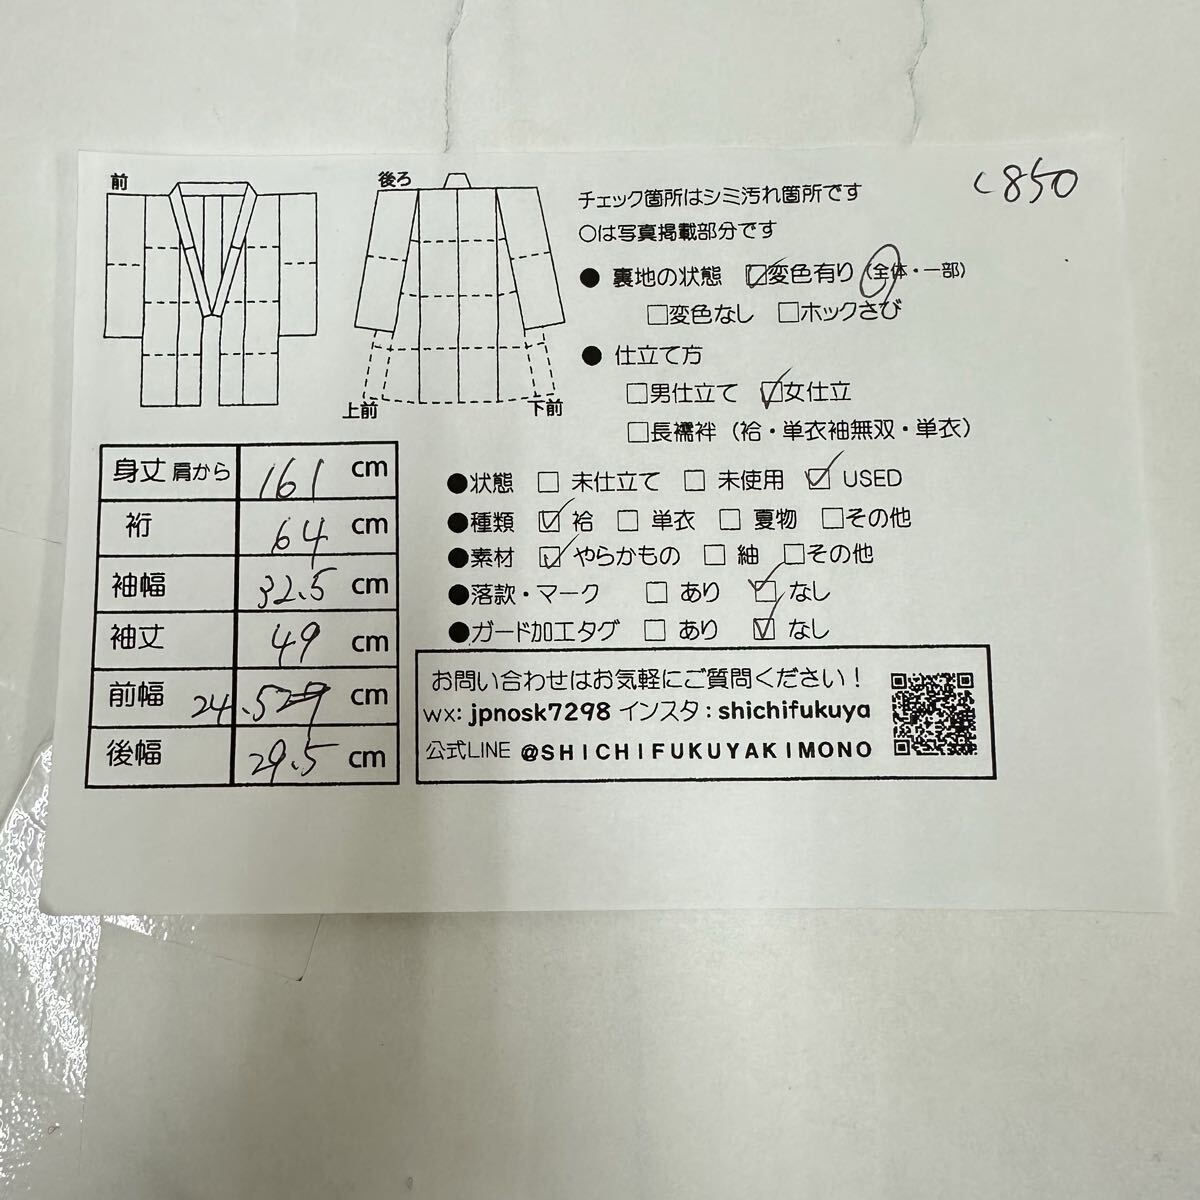 前
後ろ
上前
下前
c850
チェック箇所はシミ汚れ箇所です
○は写真掲載部分です
● 裏地の状態 ☑変色有り (全体・一部)
□変色なし □ホックさび
● 仕立て方
□男仕立て ☑女仕立
□長襦袢 (袷・単衣袖無双・単衣)
●状態 □ 未仕立て □ 未使用 ☑ USED
●種類 ☑ 袷 □ 単衣 □ 夏物 □その他
●素材 ☑ やらかもの □ 紬 □その他
●落款・マーク □ あり ☑ なし
●ガード加工タグ □ あり ☑ なし
身丈 肩から 161 cm
裄 64 cm
袖幅 32.5 cm
袖丈 49 cm
前幅 24.5 cm
後幅 29.5 cm
お問い合わせはお気軽にご質問ください！
wx: jpnosk7298 インスタ : shichifukuya
公式LINE @SHICHIFUKUYAKIMONO